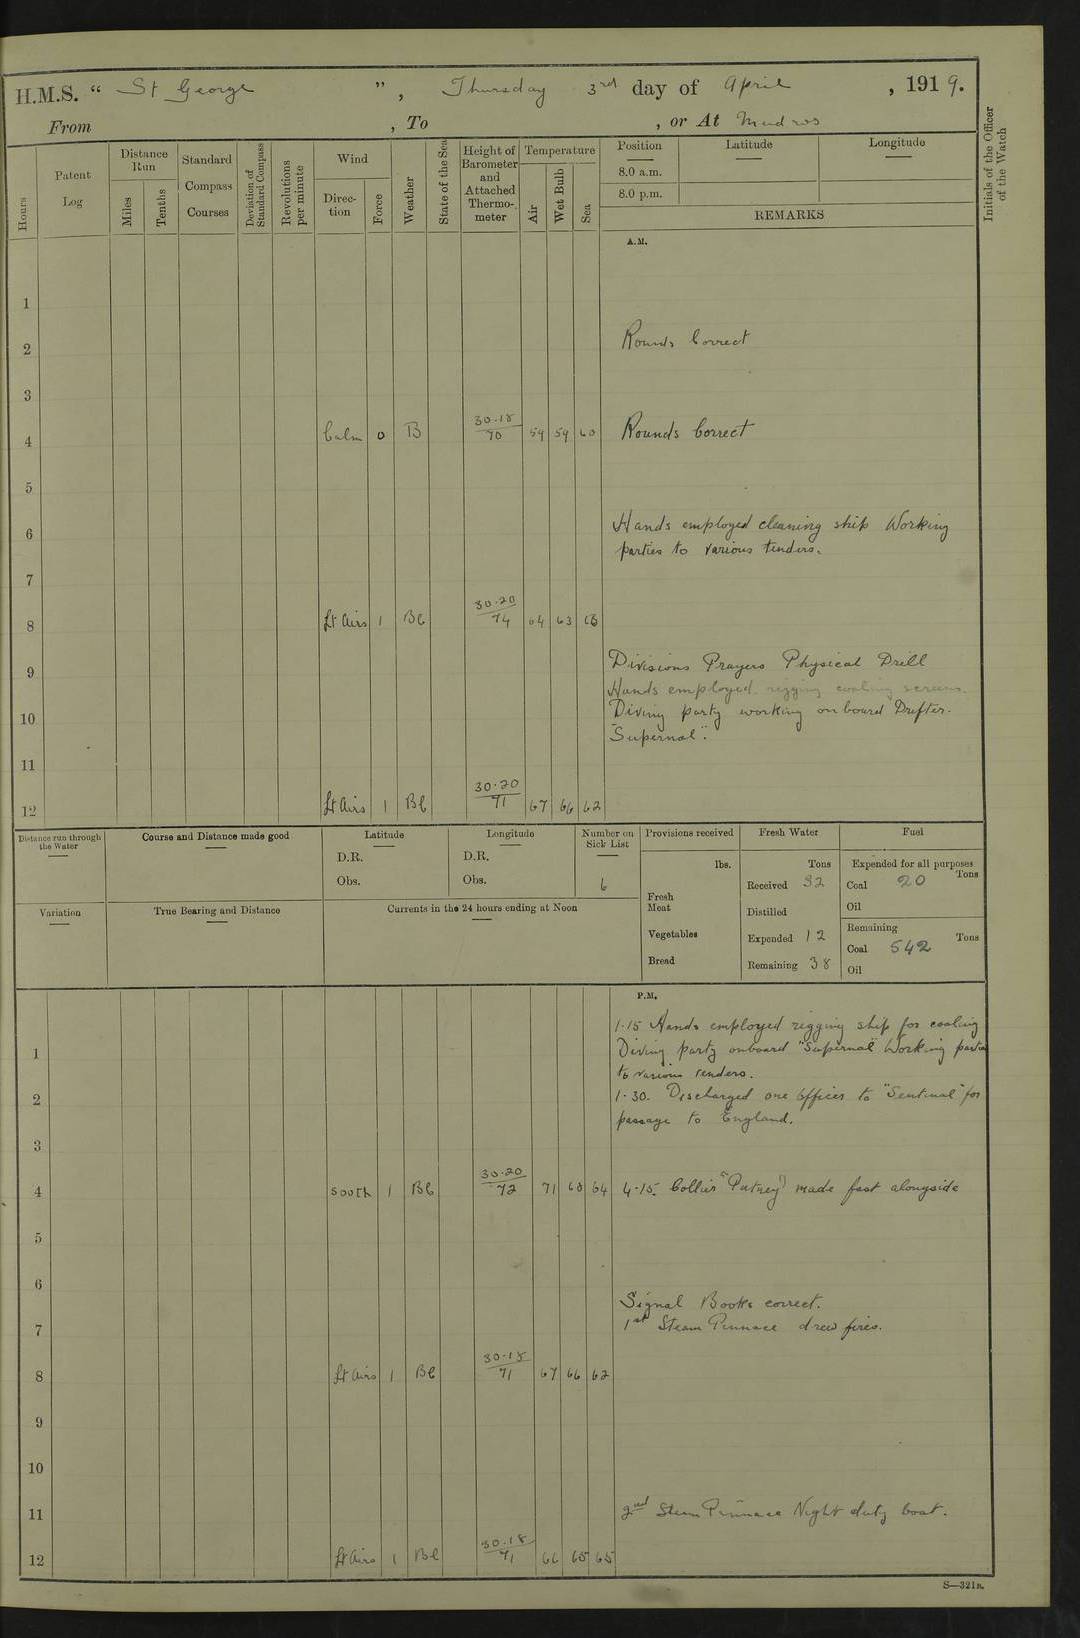 H.M.S. “ St George ”, Thursday 3rd day of April, 1919.
From , To , or At Mudros
Hours
Patent Log
Distance Run
Miles
Tenths
Standard Compass Courses
Deviation of Standard Compass
Revolutions per minute
Wind
Direction
Force
Weather
State of the Sea
Height of Barometer and Attached Thermometer
Temperature
Air
Wet Bulb
Sea
Position
8.0 a.m.
8.0 p.m.
Latitude
Longitude
REMARKS
Initials of the Officer of the Watch
A.M.
1
2 Rounds Correct
3
4 Calm 0 B 30.18/70 59 59 60 Rounds Correct
5
6 Hands employed cleaning ship Working
parties to various tenders.
7
8 Lt Airs 1 BC 30.20/74 64 63
9 Divisions Prayers Physical Drill
Hands employed rigging coaling screens.
10 Diving party working onboard Drifter
"Supernal".
11
12 Lt Airs 1 BC 30.20/71 67 66 62
Distance run through the Water
Course and Distance made good
Latitude
D.R.
Obs.
Longitude
D.R.
Obs.
Number on Sick List
6
Provisions received
lbs.
Fresh Meat
Vegetables
Bread
Fresh Water
Tons
Received 32
Distilled
Expended 12
Remaining 38
Fuel
Expended for all purposes
Tons
Coal 20
Oil
Remaining
Tons
Coal 542
Oil
Variation
True Bearing and Distance
Currents in the 24 hours ending at Noon
P.M.
1.15 Hands employed rigging ship for coaling
1 Diving party onboard "Supernal" Working parties
to various tenders.
2 1.30. Discharged one officer to "Sentinal" for
passage to England.
3
4 South 1 BC 30.20/72 71 68 64 4.15. Collier "Putney" made fast alongside
5
6
Signal Books correct.
7 1st Steam Pinnace drew fires.
8 Lt Airs 1 BC 30.18/71 67 66 62
9
10
11 2nd Steam Pinnace Night duty boat.
12 Lt Airs 1 BC 30.18/71 66 65 65
S—321B.